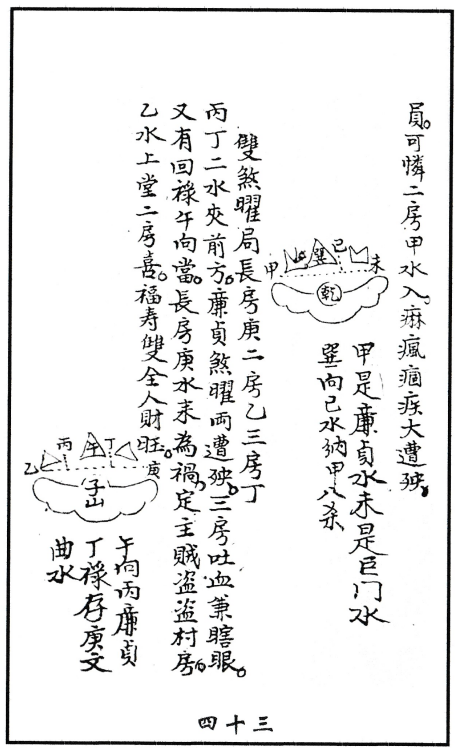 員。可憐二房甲水入。痳瘋痼疾大遭殃。
甲是廉貞水未是巨门水
巽向巳水纳甲八杀
甲 巽 巳 未
乾
雙煞曜局長房庚二房乙三房丁
丙丁二水夾前方。廉貞煞曜両遭殃。三房吐血兼瞎眼。
又有回祿午向當。長房庚水来為禍。定主賊盗盗村房。
乙水上堂二房喜。福寿雙全人財旺。
乙 丙 午 丁 庚
子山
午向丙廉貞
丁祿存庚文
曲水
四十三